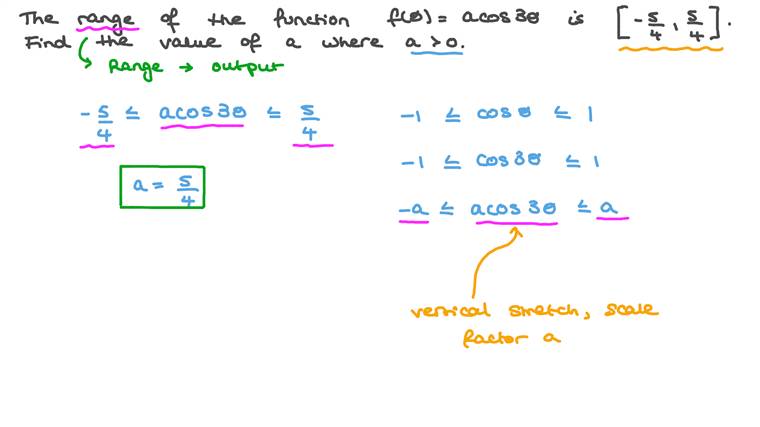 The range of the function f(θ) = a cos 3θ is [-5/4, 5/4].
Find the value of a where a > 0.
Range → output
-5/4 ≤ a cos 3θ ≤ 5/4
a = 5/4
-1 ≤ cos θ ≤ 1
-1 ≤ cos 3θ ≤ 1
-a ≤ a cos 3θ ≤ a
vertical stretch, scale
factor a